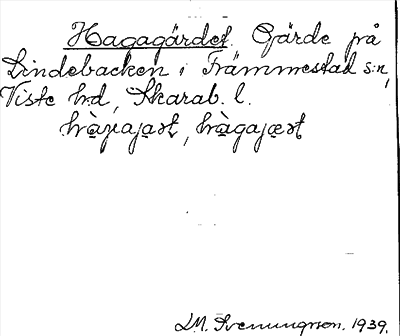 Hagagärdet. Gärde på
Lindebacken i Främmestad s:n,
Viste h:d, Skarab. l.
J.M. Svenungsson. 1939.